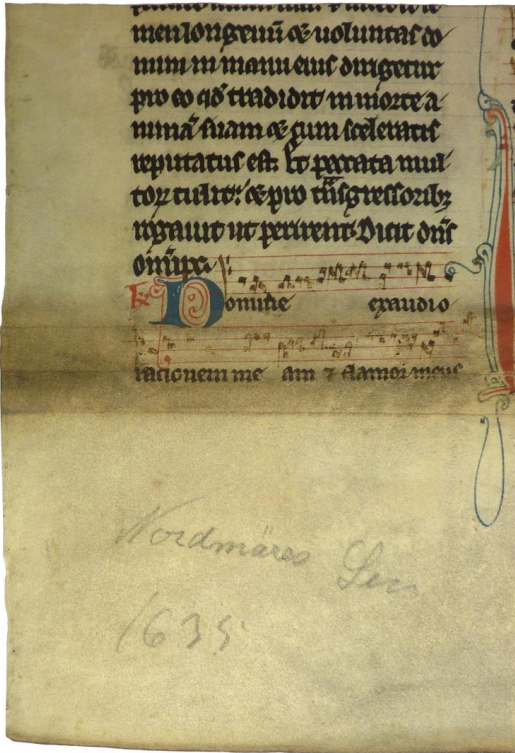 men longeuū & voluntas do
mini in manu eius dirigetur
pro eo qd̄ tradidit in morte a
nimā suam & cum sceleratis
reputatus est. Et peccata mul
toꝝ tulit: & pro tn̄sgressoribꝫ
rogauit ut perirent. Dicit dn̄s
omīps.
Domine exaudio
rationem me am ⁊ clamor meus
Nordmäres
1635